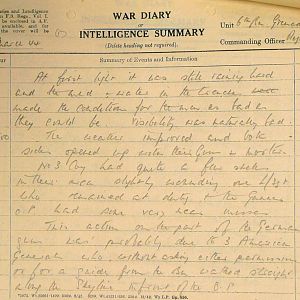 and Intelligence
in F.S. Regs., Vol. I.
be enclosed in A.F.
available, and for
cover will be
WAR DIARY
or
INTELLIGENCE SUMMARY
(Delete heading not required).
Unit 6th Bn. Grenadier
Commanding Officer
Summary of Events and Information
At first light it was still raining hard
and the mud & water in the trenches
made the conditions for the men as bad as
they could be. Visibility was naturally bad.
The weather improved and both
sides opened up with their Guns & Mortars
No 3 Coy had quite a few shells
in their area slightly wounding one L/Sgt
who remained at duty & the Gunner
O.P. had some very near misses.
This action on the part of the German
guns was probably due to 3 American
Generals who, without asking either permission
or for a guide from the Bn walked straight
along the Skyline in front of the O.P.